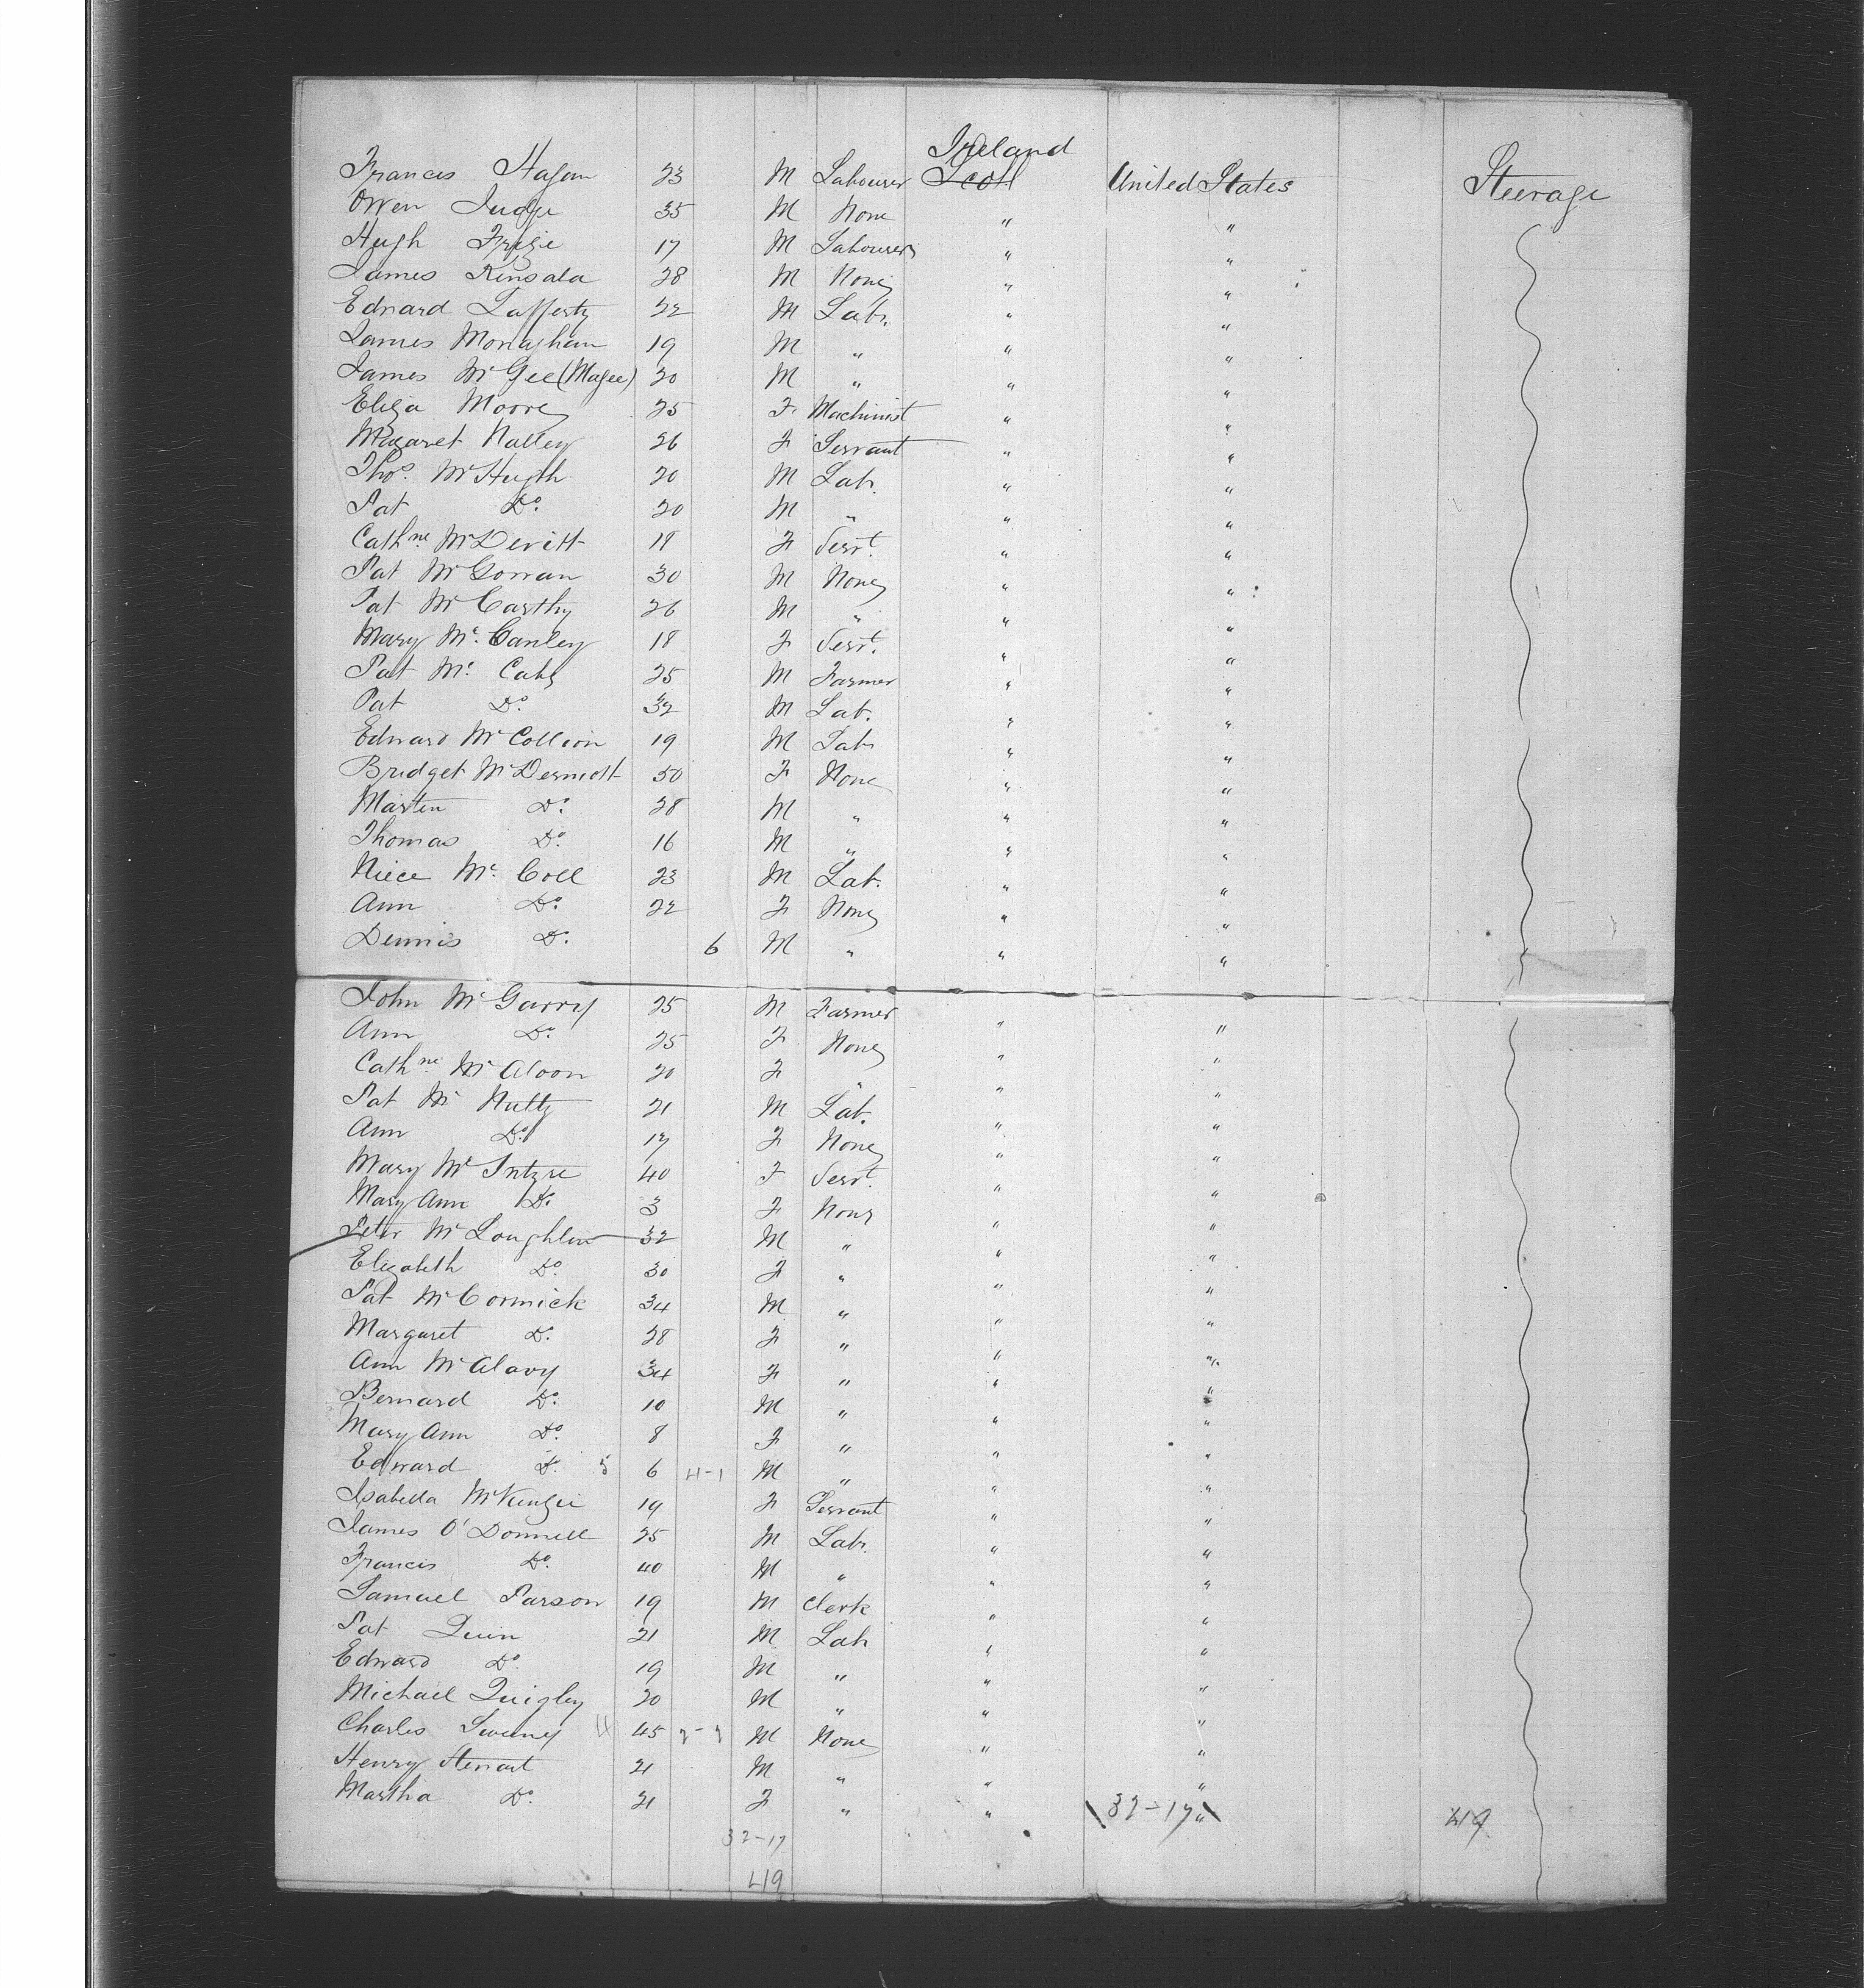 Ireland
Francis Hagan 23 M Labourer Scotl United States Steerage
Owen Judge 35 M None " "
Hugh 17 M Labourer " "
James Kinsala 28 M None " "
Edward Lafferty 22 M Lab. " "
James Monaghan 19 M " " "
James McGee (Magee) 20 M " " "
Eliza Moore 25 F Machinist " "
Margaret Nalley 26 F Servant " "
Thos. McHugh 20 M Lab. " "
Pat Do. 20 M " " "
Cathne McDevitt 18 F Servt. " "
Pat McGowan 30 M None " "
Pat McCarthy 26 M " " "
Mary Mc.Canley 18 F Servt. " "
Pat Mc. Cabe 25 M Farmer " "
Pat Do. 32 M Lab. " "
Edward McCollion 19 M Lab " "
Bridget McDermott 50 F None " "
Martin Do. 28 M " " "
Thomas Do. 16 M " " "
Niece Mc. Coll 23 M Lab. " "
Ann Do. 22 F None " "
Dennis Do. 6 M " " "
John McGarry 25 M Farmer " "
Ann Do. 25 F None " "
Cathne McAloon 20 F " " "
Pat McNulty 21 M Lab. " "
Ann Do. 17 F None " "
Mary McIntyre 40 F Servt. " "
Mary Ann Do. 3 F None " "
Peter McLoughlin 32 M " " "
Elizabeth Do. 30 F " " "
Pat McCormick 34 M " " "
Margaret Do. 28 F " " "
Ann McAlavy 34 F " " "
Bernard Do. 10 M " " "
Mary Ann Do. 8 F " " "
Edward Do. 5 6 4-1 M " " "
Isabella McKenzie 19 F Servant " "
James O'Donnell 25 M Lab. " "
Francis Do. 40 M " " "
Samuel Parson 19 M Clerk " "
Pat Quin 21 M Lab " "
Edward Do. 19 M " " "
Michael Quigley 20 M " " "
Charles Sweeney 4 45 M None " "
Henry Stewart 21 M " " "
Martha Do. 21 F " " "
32-17 419
32-17
419